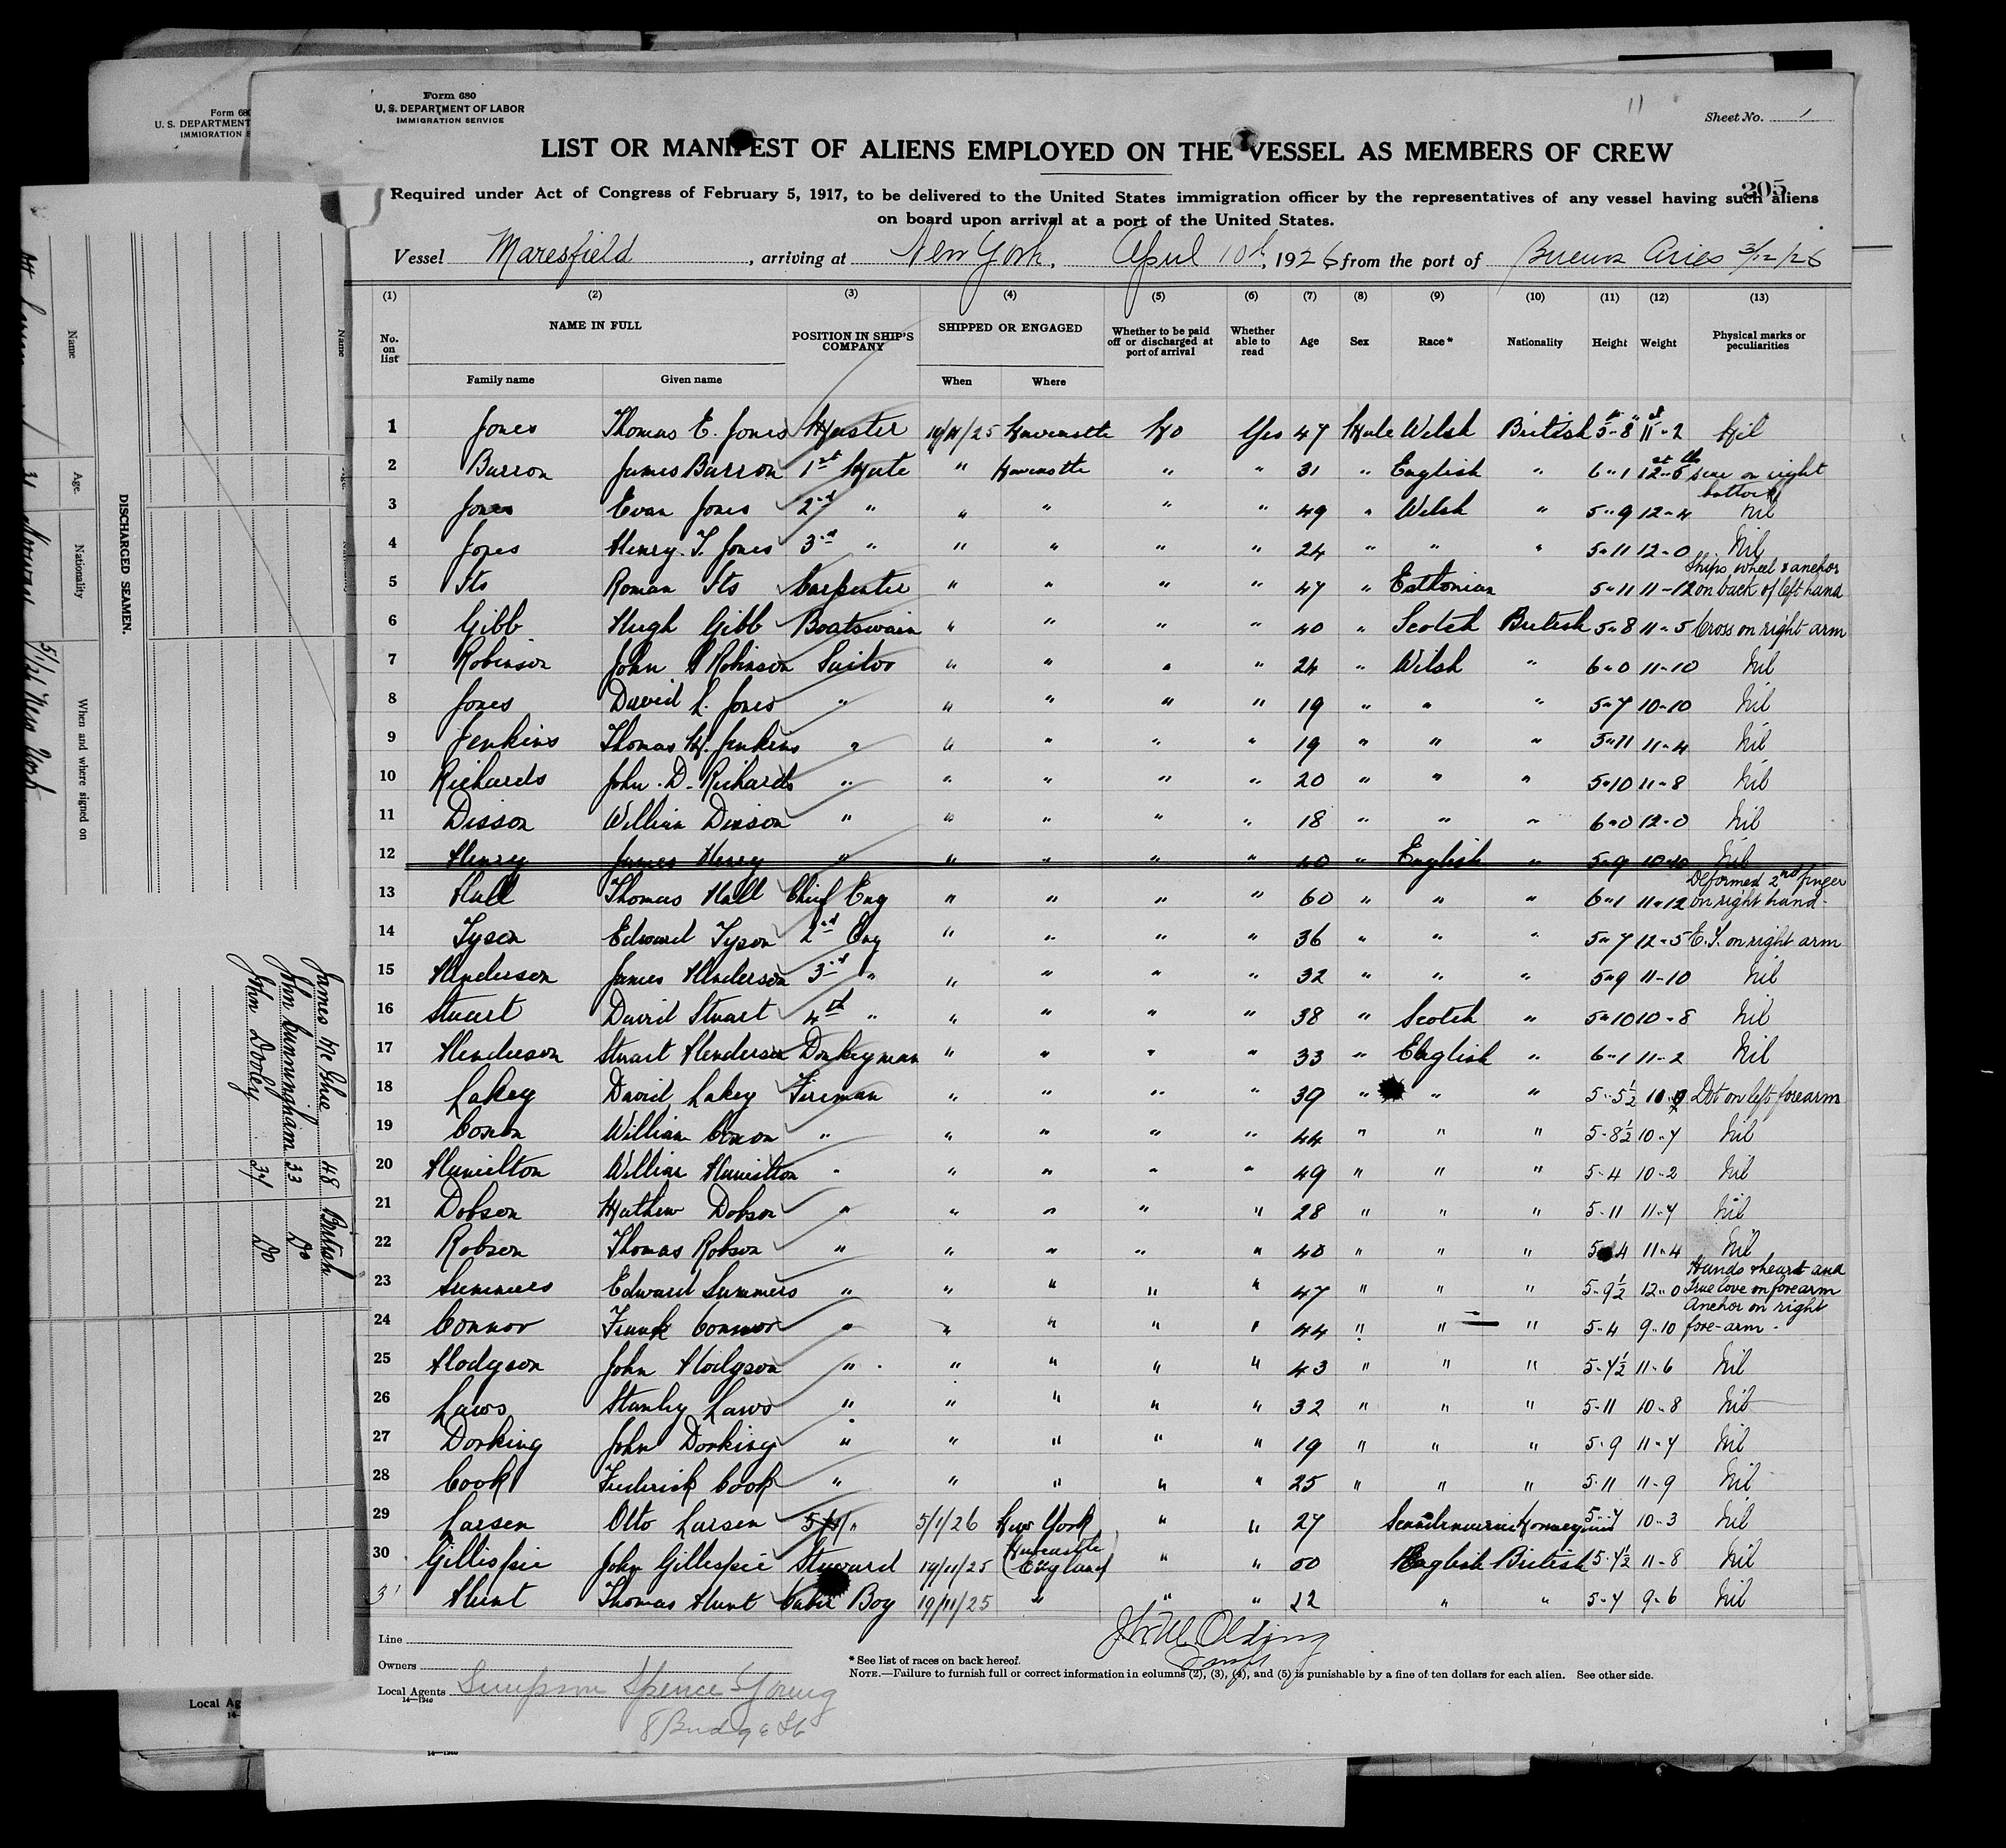 Form 680
U. S. DEPARTMENT OF LABOR
IMMIGRATION SERVICE
11
Sheet No. 1
LIST OR MANIFEST OF ALIENS EMPLOYED ON THE VESSEL AS MEMBERS OF CREW
205
Required under Act of Congress of February 5, 1917, to be delivered to the United States immigration officer by the representatives of any vessel having such aliens
on board upon arrival at a port of the United States.
Vessel Maresfield, arriving at New York, April 10th, 1926 from the port of Buenos Aries 3/12/26
(1) (2) (3) (4) (5) (6) (7) (8) (9) (10) (11) (12) (13)
No. on list NAME IN FULL Family name Given name POSITION IN SHIP'S COMPANY SHIPPED OR ENGAGED When Where Whether to be paid off or discharged at port of arrival Whether able to read Age Sex Race* Nationality Height Weight Physical marks or peculiarities
1 Jones Thomas E. Jones Master 19/11/25 Newcastle No Yes 47 Male Welsh British 5-8 11-2 Nil
2 Barron James Barron 1st Mate " Newcastle " " 31 " English " 6-1 12-5 scar on right buttock
3 Jones Evan Jones 2nd " " " " " 49 " Welsh " 5-9 12-4 Nil
4 Jones Henry. T. Jones 3rd " " " " " 24 " " " 5-11 12-0 Nil
5 Its Roman Its Carpenter " " " " 47 " Esthonian 5-11 11-12 Ships wheel & anchor on back of left hand
6 Gibb Hugh Gibb Boatswain " " " " 40 " Scotch British 5-8 11-5 Cross on right arm
7 Robinson John Robinson Sailor " " " " 24 " Welsh " 6-0 11-10 Nil
8 Jones David L. Jones " " " " " 19 " " " 5-7 10-10 Nil
9 Jenkins Thomas H. Jenkins " " " " " 19 " " " 5-11 11-4 Nil
10 Richards John. D. Richards " " " " " 20 " " " 5-10 11-8 Nil
11 Disson William Disson " " " " " 18 " " " 6-0 12-0 Nil
12 Henry James Henry " " " " " 40 " English " 5-9 10-10 Nil
13 Hall Thomas Hall Chief Eng " " " " 60 " " " 6-1 11-12 Deformed 2nd finger on right hand-
14 Tyson Edward Tyson 2nd Eng " " " " 36 " " " 5-7 12-5 E.T. on right arm
15 Henderson James Henderson 3rd " " " " " 32 " " " 5-9 11-10 Nil
16 Stuart David Stuart 4th " " " " " 38 " Scotch " 5-10 10-8 Nil
17 Henderson Stuart Henderson Donkeyman " " " " 33 " English " 6-1 11-2 Nil
18 Lakey David Lakey Fireman " " " " 39 " " " 5-5½ 10-9 Dot on left forearm
19 Coxon William Coxon " " " " " 44 " " " 5-8½ 10-7 Nil
20 Hamilton William Hamilton " " " " " 49 " " " 5-4 10-2 Nil
21 Dobson Mathew Dobson " " " " " 28 " " " 5-11 11-7 Nil
22 Robson Thomas Robson " " " " " 40 " " " 5-4 11-4 Nil
23 Summers Edward Summers " " " " " 47 " " " 5-9½ 12-0 Hands & heart and True love on forearm
24 Connor Frank Connor " " " " " 44 " " " 5-4 9-10 Anchor on right fore-arm-
25 Hodgson John Hodgson " " " " " 43 " " " 5-7½ 11-6 Nil
26 Laws Stanley Laws " " " " " 32 " " " 5-11 10-8 Nil
27 Dorking John Dorking " " " " " 19 " " " 5-9 11-7 Nil
28 Cook Frederick Cook " " " " " 25 " " " 5-11 11-9 Nil
29 Larsen Otto Larsen " 5/1/26 New York " " 27 Scandinavian Norwegian 5-7 10-3 Nil
30 Gillispie John Gillespie Steward 19/11/25 Newcastle England " " 50 English British 5-7½ 11-8 Nil
31 Hunt Thomas Hunt Cabin Boy 19/11/25 " " " 22 " " 5-4 9-6 Nil
Line
Owners
Local Agents Simpson Spence Young
8 Bridge St
14—1240
*See list of races on back hereof.
NOTE.—Failure to furnish full or correct information in columns (2), (3), (4), and (5) is punishable by a fine of ten dollars for each alien. See other side.
Form 680
U. S. DEPARTMENT
IMMIGRATION S
DISCHARGED SEAMEN.
Name Age. Nationality When and where signed on
31 Norway 5/1/26 New York
Name
James McGhie 48 British
John Cunningham 33 Do
John Dooley 37 Do
Local Ag
14—1240